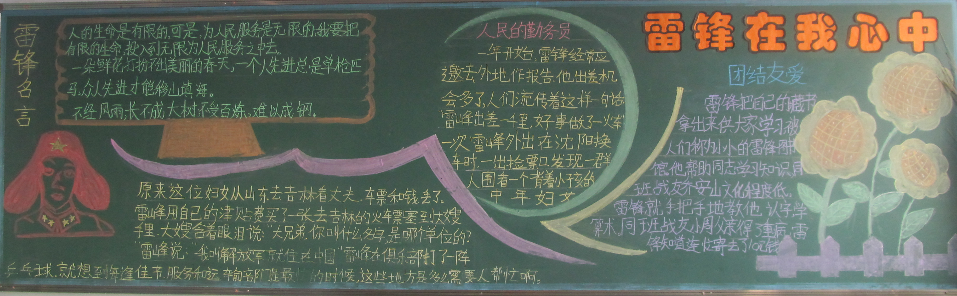 雷锋名言
人的生命是有限的,可是,为人民服务是无限的,我要把
有限的生命,投入到无限为人民服务之中去。
一朵鲜花打扮不出美丽的春天,一个人先进总是单枪匹
马,众人先进才能移山填海。
不经风雨,长不成大树,不受百炼,难以成钢。
人民的勤务员
一年开始,雷锋经常应
邀去外地作报告,他出差机
会多了,人们流传着这样一句话:
雷锋出差一千里,好事做了一火车
一次雷锋外出在沈阳换
车时,一出检票口,发现一群
人围着一个背着小孩的
中年妇女
原来这位妇女从山东去吉林看丈夫,车票和钱丢了。
雷锋用自己的津贴费买了一张去吉林的火车票塞到大嫂
手里,大嫂含着眼泪说:“大兄弟,你叫什么名字,是哪个单位的?”
“雷锋说:“我叫解放军,就住在中国”
的时候,这些地方是多么需要人帮忙啊。
雷锋在我心中
团结友爱
雷锋把自己的藏书
拿出来供大家学习,被
人们称为小的雷锋图
书馆,他帮助同志学习知识,同
班战友乔安山文化程度低,
雷锋就手把手地教他认字、学
算术,同班战友小周父亲得了重病,雷
锋知道连忙寄去了